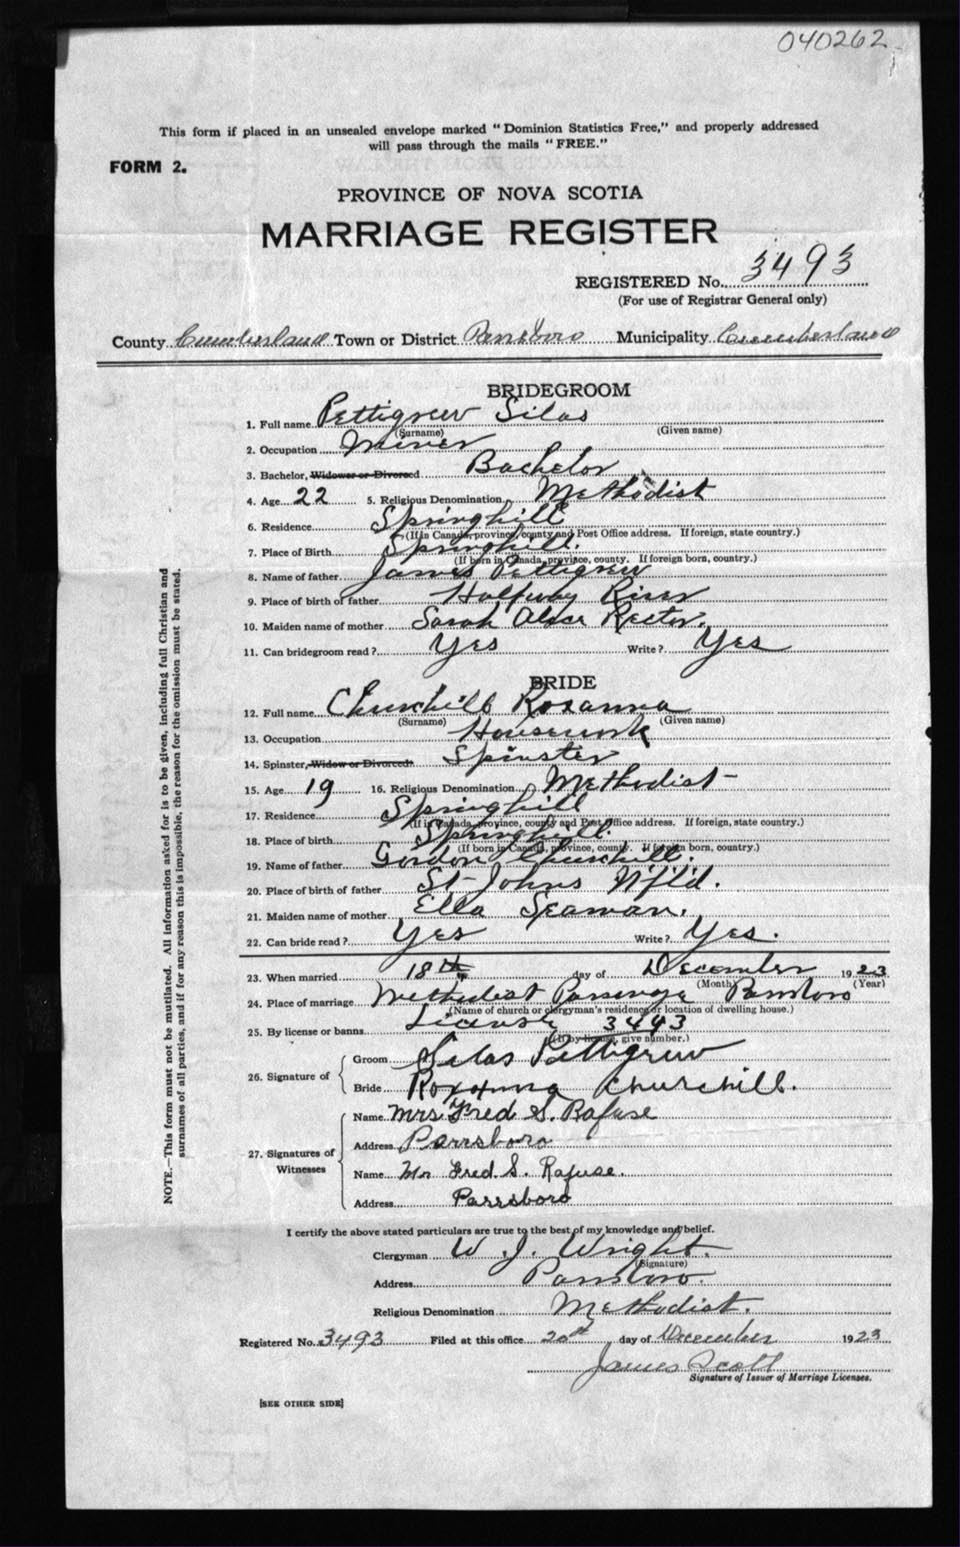 040262
This form if placed in an unsealed envelope marked "Dominion Statistics Free," and properly addressed
will pass through the mails "FREE."
FORM 2.
PROVINCE OF NOVA SCOTIA
MARRIAGE REGISTER
REGISTERED No. 3493
(For use of Registrar General only)
County Cumberland Town or District Parrsboro Municipality Cumberland
BRIDEGROOM
1. Full name Pettigrew Silas
(Surname) (Given name)
2. Occupation Miner
3. Bachelor, Widower or Divorced Bachelor
4. Age 22 5. Religious Denomination Methodist
6. Residence Springhill
(If in Canada, province, county and Post Office address. If foreign, state country.)
7. Place of Birth Springhill.
(If born in Canada, province, county. If foreign born, country.)
8. Name of father James Pettigrew
9. Place of birth of father Halfway River
10. Maiden name of mother Sarah Rector.
11. Can bridegroom read? Yes Write? Yes
BRIDE
12. Full name Churchill Roxanna
(Surname) (Given name)
13. Occupation Housework
14. Spinster, Widow or Divorced Spinster
15. Age 19 16. Religious Denomination Methodist
17. Residence Springhill
(If in Canada, province, county and Post Office address. If foreign, state country.)
18. Place of birth Springhill.
(If born in Canada, province, county. If foreign born, country.)
19. Name of father Gordon Churchill.
20. Place of birth of father St Johns Nfld.
21. Maiden name of mother Ella Seaman.
22. Can bride read? Yes Write? Yes.
23. When married 18th day of December 1923
(Month) (Year)
24. Place of marriage Methodist Parsonage Parrsboro
(Name of church or clergyman's residence or location of dwelling house.)
25. By license or banns License 3493
(If by license, give number.)
26. Signature of Groom Silas Pettigrew
Bride Roxanna Churchill.
27. Signatures of Witnesses
Name Mrs Fred S. Rafuse
Address Parrsboro
Name Mr Fred. S. Rafuse.
Address Parrsboro
I certify the above stated particulars are true to the best of my knowledge and belief.
Clergyman W. J. Wright.
(Signature)
Address Parrsboro.
Religious Denomination Methodist.
Registered No. 3493 Filed at this office 20th day of December 1923
James Scott
Signature of Issuer of Marriage Licenses.
[SEE OTHER SIDE]
NOTE.—This form must not be mutilated. All information asked for is to be given, including full Christian and
surnames of all parties, and if for any reason this is impossible, the reason for the omission must be stated.